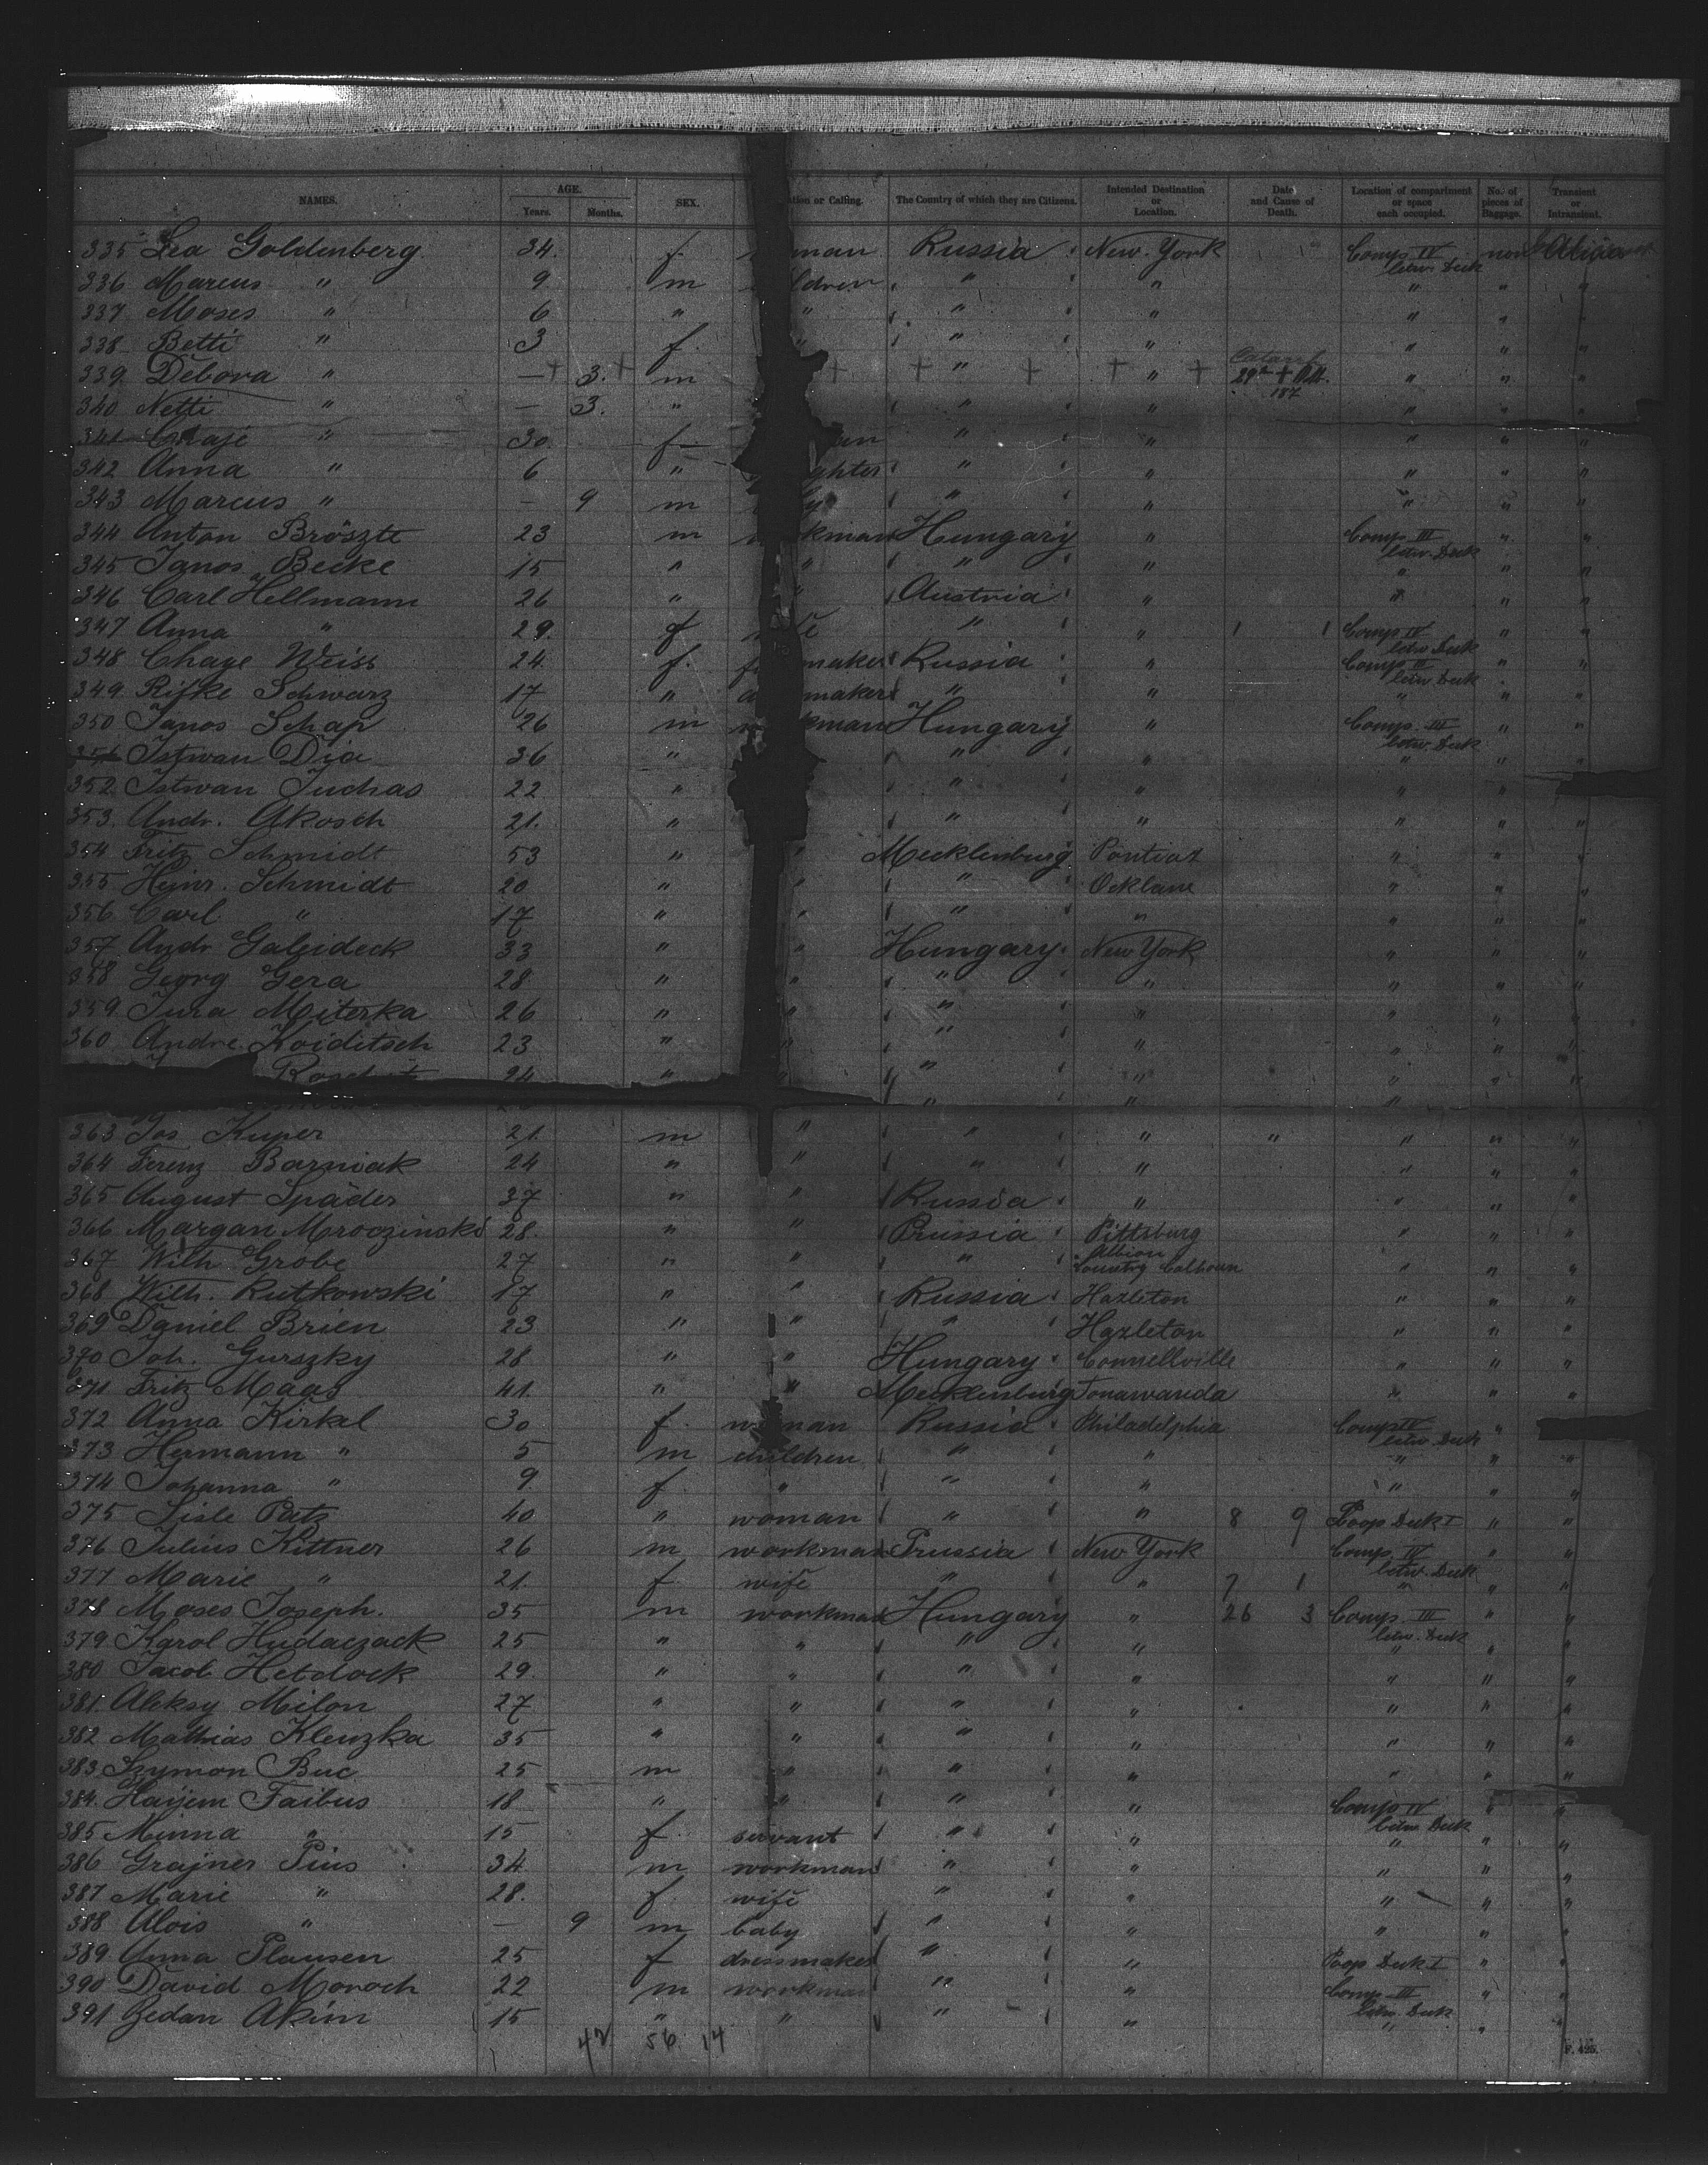 NAMES. AGE. Years. Months. SEX. ation or Calling. The Country of which they are Citizens. Intended Destination or Location. Date and Cause of Death. Location of compartment or space each occupied. No. of pieces of Baggage. Transient or Intransient.
335 Lea Goldenberg 34. f. man Russia New York Comp IV betw. Deck
336 Marcus " 9 m ldren " " " " "
337 Moses " 6 " " " " " " "
338 Betti " 3 f. " " " " " "
339 Debora " — 3. m " " Catarrh " " "
340 Netti " — 3. " " " " " "
341 Chaje " 30 f " " " " "
342 Anna " 6 " ghter " " " " "
343 Marcus " — 9 m y " " " " "
344 Anton Bröszte 23 m kman Hungary " Comp III betw. Deck " "
345 Janos Becke 15 " " " " " " "
346 Carl Hellmann 26 " " Austria " " " "
347 Anna " 29. f " " 1 1 Comp IV betw Deck " "
348 Chaye Weiss 24. f. maker Russia " Comp betw. Deck " "
349. Rifke Schwarz 17 " maker " " " " "
350 Janos Schap 26 m kman Hungary " Comp. III betw. Deck " "
Istwan Dia 36 " " " " " "
352 Istwan Juchas 22 " " " " " "
353. Andr. Akosch 21. " " " " " "
354 Fritz Schmidt 53 " " Mecklenburg Pontiac " " "
355 Heinr. Schmidt 20 " " " " " "
356 Carl " 17 " " " " " " "
357 Andr Galeideck 33 " " Hungary New York " " "
358 Georg Gera 28. " " " " " " "
359 Jura Miterka 26 " " " " " " "
360 Andre Koiditsch 23 " " " " " " "
24 " " " " " " "
363 Jos Kuper 21. m " " " " " " "
364 Ferenz Barniak 24 " " " " " " "
365 August Späder 37 " " Russia " " " "
366 Margan Mroczinski 28. " " Prussia Pittsburg " " "
367 Wilh Grobe 27 " " " Albion Country Calhoun " " "
368 Wilh. Rutkowski 17 " " Russia Hazleton " " "
369 Daniel Brien 23 " " " Hazleton " " "
370 Joh. Gurszky 28 " " Hungary Connellville " " "
371 Fritz Maas 41. " " Mecklenburg Tonawanda " " "
372 Anna Kirkel 30 f. woman Russia Philadelphia Comp IV betw. Deck "
373 Hermann " 5 m children " " " " "
374 Johanna " 9. f. " " " " " "
375 Lisle Patz 40 " woman " " 8 9 Poop Deck I " "
376 Julius Kittner 26 m workman Prussia New York Comp. IV betw. Deck " "
377 Marie " 21. f wife " " 7 1 " " "
378 Moses Joseph. 35 m workman Hungary " 26 3 Comp. III betw. Deck " "
379 Karol Hudaczack 25 " " " " " " "
380 Jacob Hetdock 29. " " " " " " "
381. Aleksy Milon 27 " " " " " " "
382 Mathias Klenzka 35 " " " " " " "
383. Szymon Buc 25 m " " " " " "
384. Haijem Faibus 18 " " " " Comp IV betw. Deck " "
385 Minna " 15 f. servant " " " " "
386 Grajner Pius 34 m workman " " " " "
387 Marie " 28. f. wife " " " " "
388 Alois " — 9 m baby " " " " "
389 Anna Plausen 25 f dressmaker " " Poop Deck I " "
390 David Moroch 22 m workman " " Comp. III betw. Deck " "
391 Zedan Akim 15 " " " " " " "
42 56 14
F. 425.